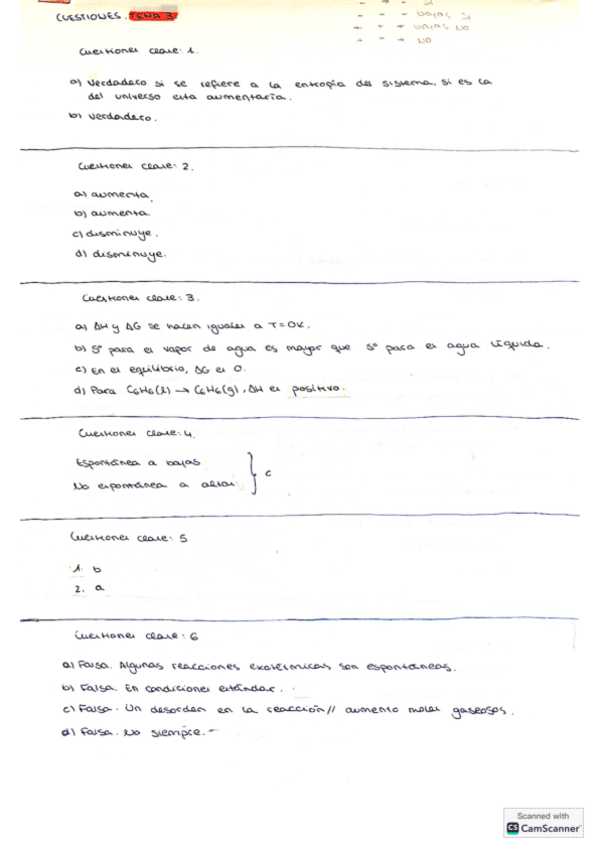 CUESTIONES. TEMA 3
- + - SI
- - - bajas SI
+ + + bajas NO
+ - + NO
Cuestiones clase: 1.
a) Verdadero si se refiere a la entropía del sistema. Si es la
del universo esta aumentaría.
b) Verdadero.
Cuestiones clase: 2.
a) aumenta.
b) aumenta.
c) disminuye.
d) disminuye.
Cuestiones clase: 3.
a) ΔH y ΔG se hacen iguales a T=0K.
b) S° para el vapor de agua es mayor que S° para el agua líquida.
c) En el equilibrio, ΔG es 0.
d) Para C6H6(l) → C6H6(g), ΔH es positivo.
Cuestiones clase: 4.
Espontánea a bajas
No espontánea a altas } c
Cuestiones clase: 5
1. b
2. a
Cuestiones clase: 6
a) Falsa. Algunas reacciones exotérmicas son espontáneas.
b) Falsa. En condiciones estándar.
c) Falsa. Un desorden en la reacción // aumento moles gaseosos.
d) Falsa. No siempre. -
Scanned with
CS CamScanner